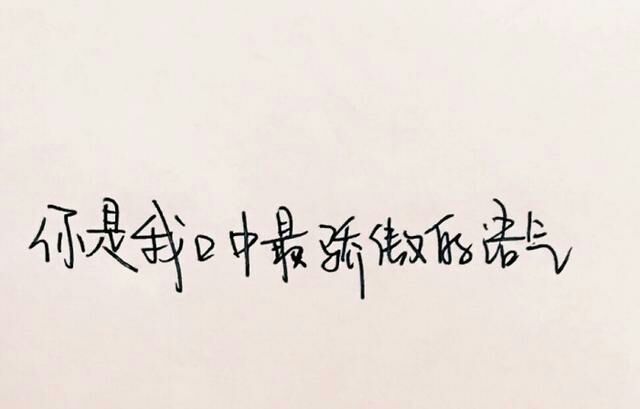 你是我口中最骄傲的语气